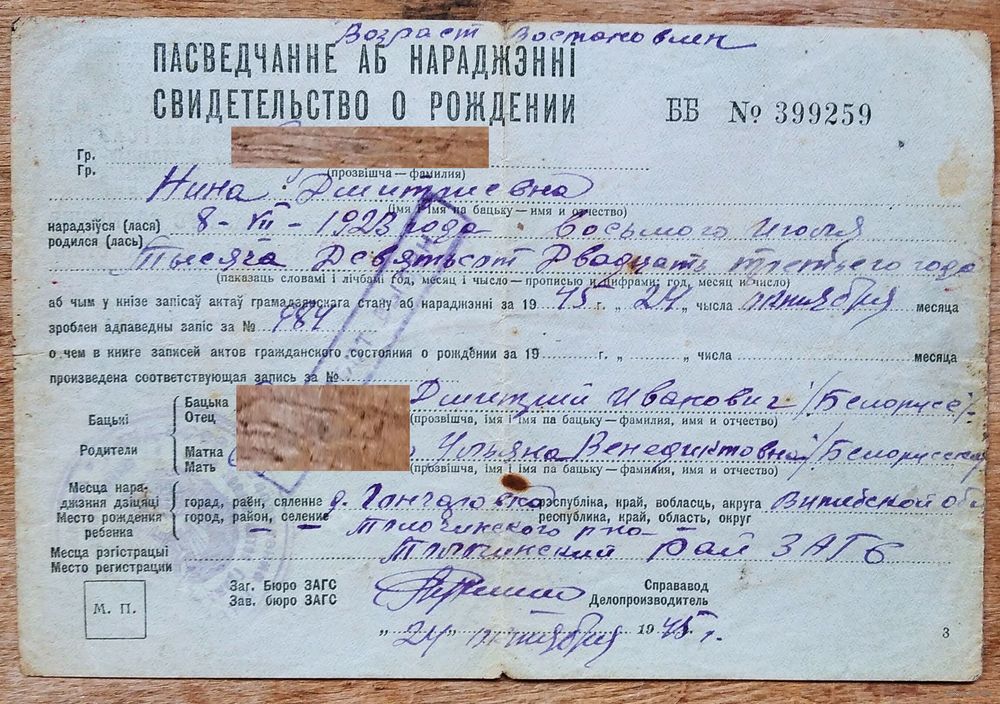 Возраст Востановлен
ПАСВЕДЧАННЕ АБ НАРАДЖЭННІ
СВИДЕТЕЛЬСТВО О РОЖДЕНИИ
ББ № 399259
Гр.
Гр.
(прозвішча—фамилия)
Нина Дмитриевна
(імя і імя па бацьку—имя и отчество)
нарадзіўся (лася)
родился (лась)
8-VII-1923 года восьмого Июля
Тысяча Девятьсот Двадцать третьего года
(паказаць словамі і лічбамі год, месяц і чысло—прописью и цифрами: год, месяц и число)
аб чым у кнізе запісаў актаў грамадзянскага стану аб нараджэнні за 19 45 г. „ 24 „ числа октября месяца
зроблен адпаведны запіс за № 484
о чем в книге записей актов гражданского состояния о рождении за 19 г. „ „ числа месяца
произведена соответствующая запись за №
Бацькі
Родители
Бацька
Отец
Дмитрий Иванович /Белорусс/
(прозвішча, імя і імя па бацьку—фамилия, имя и отчество)
Матка
Мать
Ульяна Венедиктовна /Белорусска/
(прозвішча, імя і імя па бацьку—фамилия, имя и отчество)
Месца нараджэння дзіцяці
Место рождения ребенка
горад, раён, сяленне
город, район, селение
д. Гончаровка
Толочинского р-на
рэспубліка, край, вобласць, акруга
республика, край, область, округ
Витебской обл
Месца рэгістрацыі
Место регистрации
Толочинский Рай ЗАГС
Заг. Бюро ЗАГС
Зав. бюро ЗАГС
Справавод
Делопроизводитель
М. П.
„ 24 „ октября 19 45 г.
3